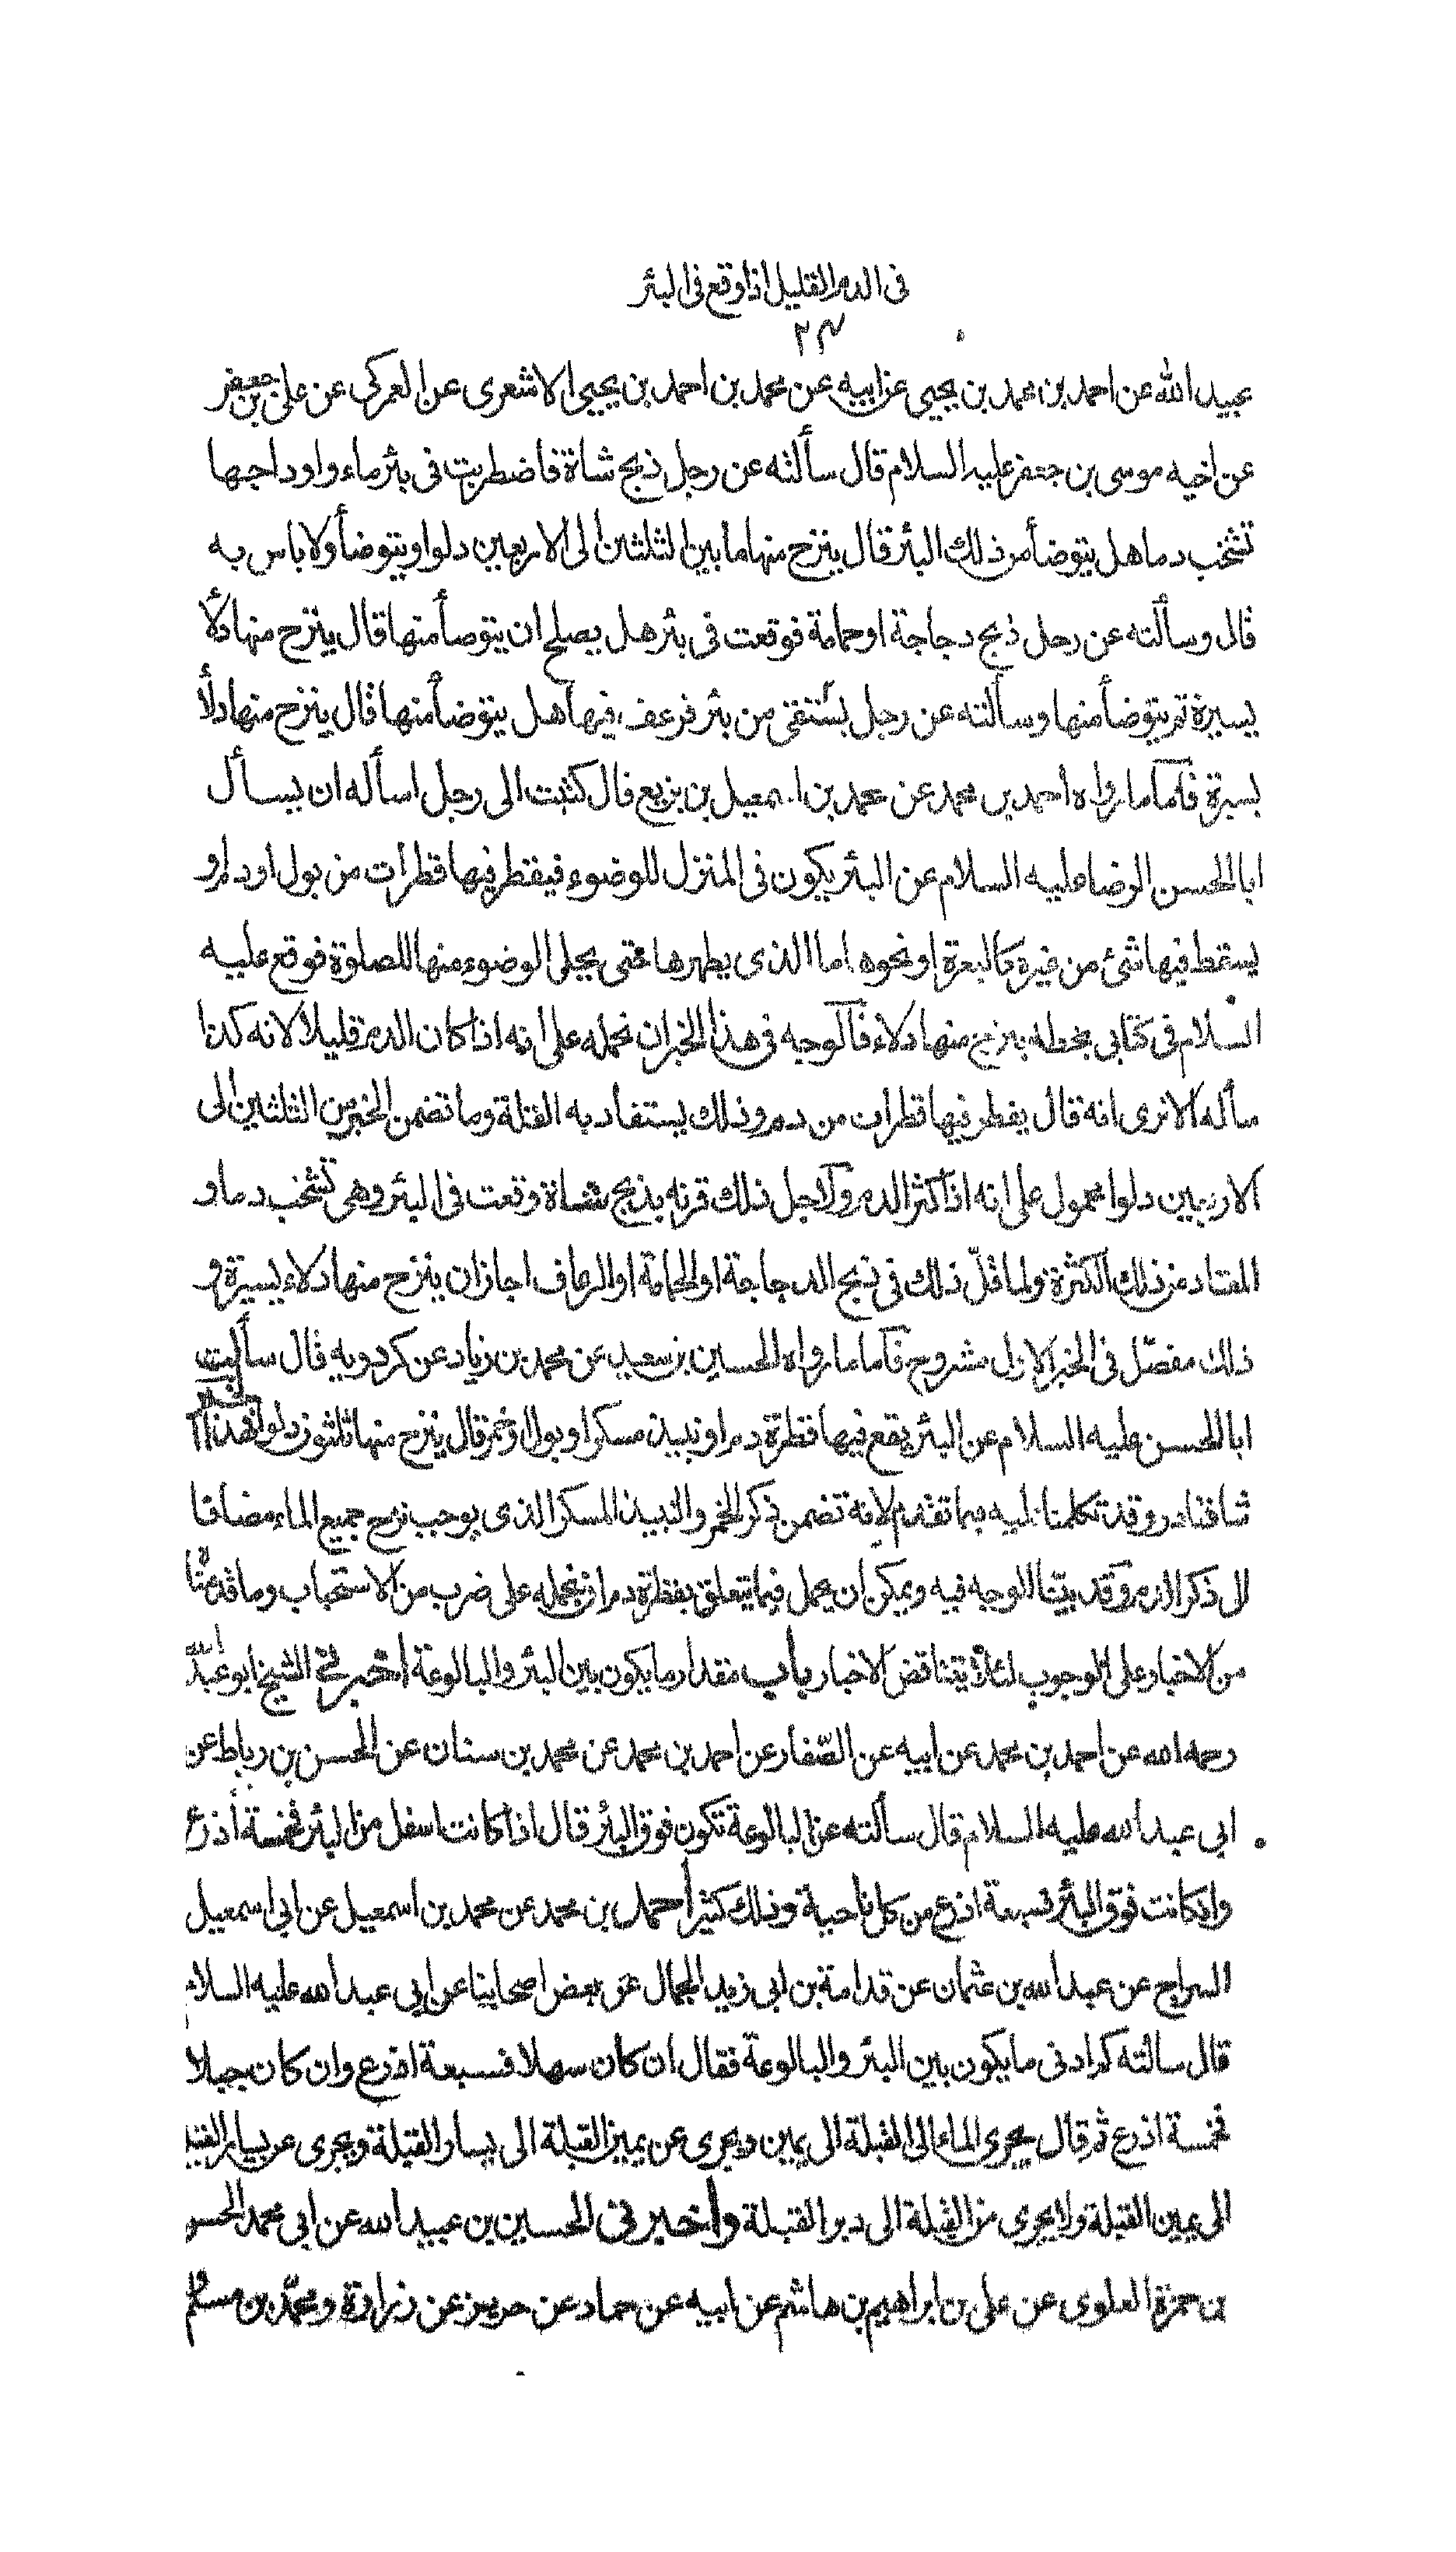 فى الدم القليل اذا وقع فى البئر
٢٣
عبيد الله عن احمد بن محمد بن يحيى عن ابيه عن محمد بن احمد بن يحيى الاشعرى عن العمركى عن على بن جعفر
عن اخيه موسى بن جعفر عليه السلام قال سألته عن رجل ذبح شاة فاضطربت فى بئر ماء واوداجها
تشخب دما هل يتوضأ من ذلك البئر قال ينزح منها ما بين الثلثين الى الاربعين دلوا ويتوضأ ولا باس به
قال وسألته عن رجل ذبح دجاجة او حمامة فوقعت فى بئر هل يصلح ان يتوضأ منها قال ينزح منها دلأ
يسيرة ثم يتوضأ منها وسألته عن رجل يستقى من بئر فرعف فيها هل يتوضأ منها قال ينزح منها دلأ
يسيرة فأما ما رواه احمد بن محمد عن محمد بن اسمعيل بن بزيع قال كتبت الى رجل اسأله ان يسأل
ابا الحسن الرضا عليه السلام عن البئر يكون فى المنزل للوضوء فيقطر فيها قطرات من بول او دم او
يسقط فيها شئ من غيره كالبعرة او نحوها ما الذى يطهرها حتى يحل الوضوء منها للصلوة فوقع عليه
السلام فى كتابى بخطه ينزح منها دلاء فالوجه فى هذا الخبر ان نحمله على انه اذا كان الدم قليلا لانه كذا
سأله الا ترى انه قال يقطر فيها قطرات من دم وذلك يستفاد به القلة وما تضمن الخبر من الثلثين الى
الاربعين دلوا محمول على انه اذا كثر الدم ولاجل ذلك قرنه بذبح شاة وقعت فى البئر وهى تشخب دما و
المعتاد من ذلك الكثرة ولما قلّ ذلك فى ذبح الدجاجة او الحمامة او الرعاف اجاز ان ينزح منها دلاء يسيرة و
ذلك مفصّل فى الخبر الاول مشروح فأما ما رواه الحسين بن سعيد عن محمد بن زياد عن كردويه قال سألت
ابا الحسن عليه السلام عن البئر يقع فيها قطرة دم او نبيذ مسكر او بول او خمر قال ينزح منها ثلثون دلوا فهذا الخبر
شاذ نادر وقد تكلمنا عليه فيما تقدم لانه تضمن ذكر الخمر والنبيذ المسكر الذى يوجب نزح جميع الماء مضافا
الى ذكر الدم وقد بيّنا الوجه فيه ويمكن ان يحمل فيما يتعلق بقطرة دم ان نحمله على ضرب من الاستحباب وما قدمناه
من الاخبار على الوجوب لئلا يتناقض الاخبار باب مقدار ما يكون بين البئر والبالوعة أخبرنى الشيخ ابو عبد الله
رحمه الله عن احمد بن محمد عن ابيه عن الصّفار عن احمد بن محمد عن محمد بن سنان عن الحسن بن رباط عن
ابى عبد الله عليه السلام قال سألته عن البالوعة تكون فوق البئر قال اذا كانت اسفل من البئر فخمسة أذرع
واذا كانت فوق البئر فسبعة اذرع من كل ناحية وذلك كثير أحمد بن محمد عن محمد بن اسمعيل عن ابى اسمعيل
السراج عن عبد الله بن عثمان عن قدامة بن ابى زيد الجمال عن بعض اصحابنا عن ابى عبد الله عليه السلام
قال سألته كم ادنى ما يكون بين البئر والبالوعة فقال ان كان سهلا فسبعة اذرع وان كان جبلا
فخمسة اذرع ثم قال يجرى الماء الى القبلة الى يمين ويجرى عن يمين القبلة الى يسار القبلة ويجرى عن يسار القبلة
الى يمين القبلة ولا يجرى من القبلة الى دبر القبلة وأخبرنى الحسين بن عبيد الله عن ابى محمد الحسن
بن حمزة العلوى عن على بن ابراهيم بن هاشم عن ابيه عن حماد عن حريز عن زرارة ومحمّد بن مسلم و